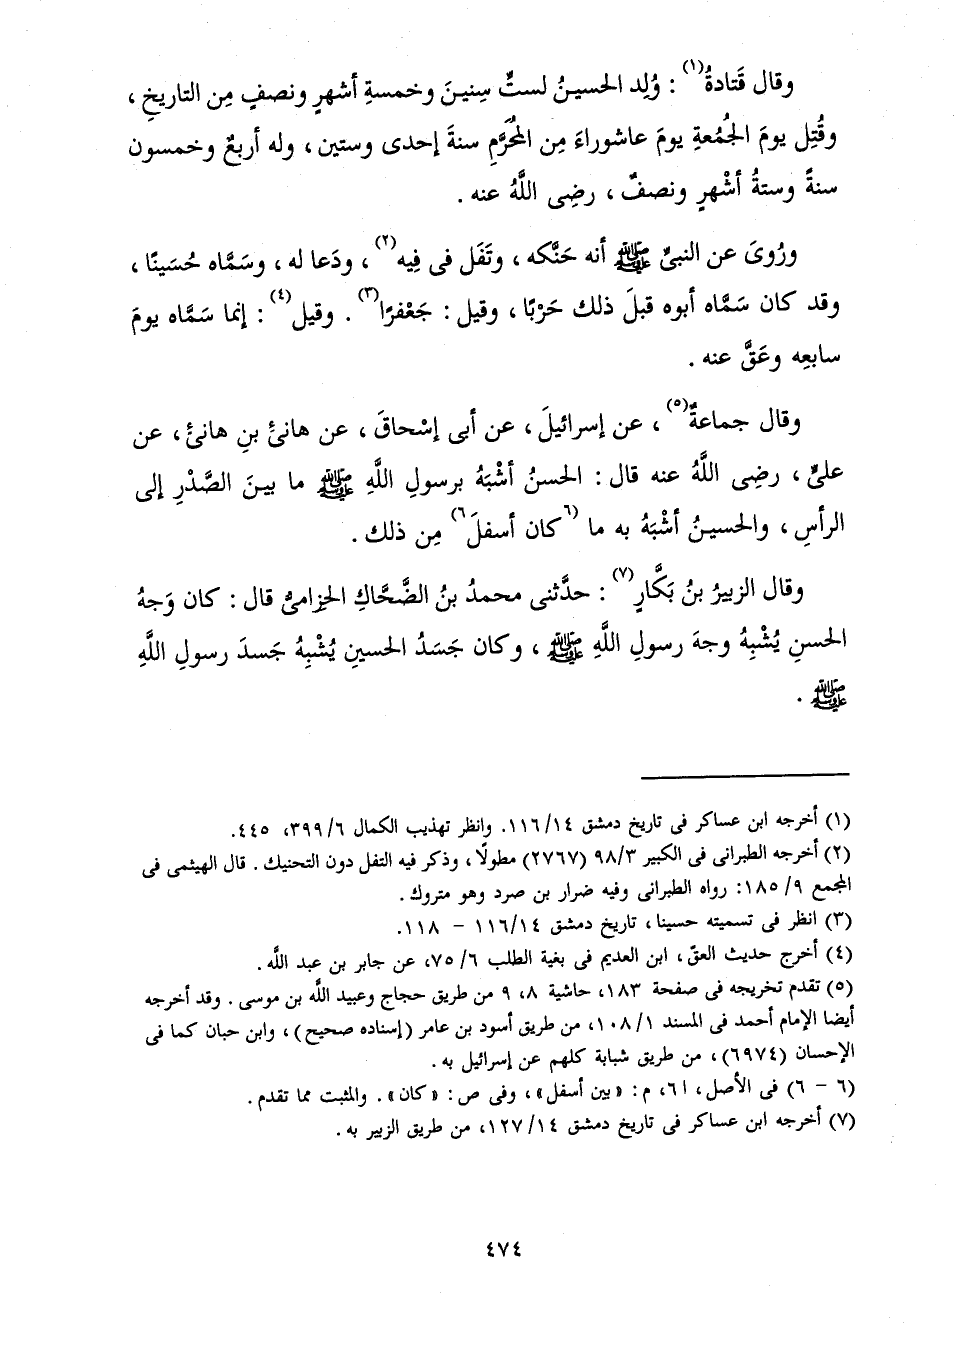 وقال قَتادةُ(١) : وُلِد الحسينُ لستِّ سِنينَ وخمسةِ أشهرٍ ونصفٍ مِن التاريخِ ،
وقُتِل يومَ الجُمُعةِ يومَ عاشوراءَ مِن المُحَرَّمِ سنةَ إحدى وستين ، وله أربعٌ وخمسون
سنةً وستةُ أشْهرٍ ونصفٌ ، رضِى اللَّهُ عنه .
ورُوىَ عن النبىِّ ﷺ أنه حَنَّكه ، وتَفَل فى فِيه(٢) ، ودَعا له ، وسَمَّاه حُسَينًا ،
وقد كان سَمَّاه أبوه قبلَ ذلك حَرْبًا ، وقيل : جَعْفرًا(٣) . وقيل(٤) : إنما سَمَّاه يومَ
سابعِه وعَقَّ عنه .
وقال جماعةٌ(٥) ، عن إسرائيلَ ، عن أبى إسْحاقَ ، عن هانئِ بنِ هانئ ، عن
علىٍّ ، رضِى اللَّهُ عنه قال : الحسنُ أشْبَهُ برسولِ اللَّهِ ﷺ ما بينَ الصَّدْرِ إلى
الرأسِ ، والحسينُ أشْبَهُ به ما (٦كان أسفلَ٦) مِن ذلك .
وقال الزبيرُ بنُ بَكَّارٍ(٧) : حدَّثنى محمدُ بنُ الضَّحَّاكِ الحِزامىُّ قال : كان وَجهُ
الحسنِ يُشْبِهُ وجهَ رسولِ اللَّهِ ﷺ ، وكان جَسَدُ الحسينِ يُشْبِهُ جَسدَ رسولِ اللَّهِ
ﷺ .
(١) أخرجه ابن عساكر فى تاريخ دمشق ١١٦/١٤. وانظر تهذيب الكمال ٣٩٩/٦، ٤٤٥.
(٢) أخرجه الطبرانى فى الكبير ٩٨/٣ (٢٧٦٧) مطولًا ، وذكر فيه التفل دون التحنيك . قال الهيثمى فى
المجمع ١٨٥/٩: رواه الطبرانى وفيه ضرار بن صرد وهو متروك .
(٣) انظر فى تسميته حسينا ، تاريخ دمشق ١١٦/١٤ – ١١٨.
(٤) أخرج حديث العقّ ، ابن العديم فى بغية الطلب ٧٥/٦، عن جابر بن عبد اللَّه .
(٥) تقدم تخريجه فى صفحة ١٨٣، حاشية ٨، ٩ من طريق حجاج وعبيد اللَّه بن موسى . وقد أخرجه
أيضا الإمام أحمد فى المسند ١٠٨/١، من طريق أسود بن عامر (إسناده صحيح) ، وابن حبان كما فى
الإحسان (٦٩٧٤) ، من طريق شبابة كلهم عن إسرائيل به .
(٦ – ٦) فى الأصل ، ا٦، م : «بين أسفل» ، وفى ص : «كان» . والمثبت مما تقدم .
(٧) أخرجه ابن عساكر فى تاريخ دمشق ١٢٧/١٤، من طريق الزبير به .
٤٧٤